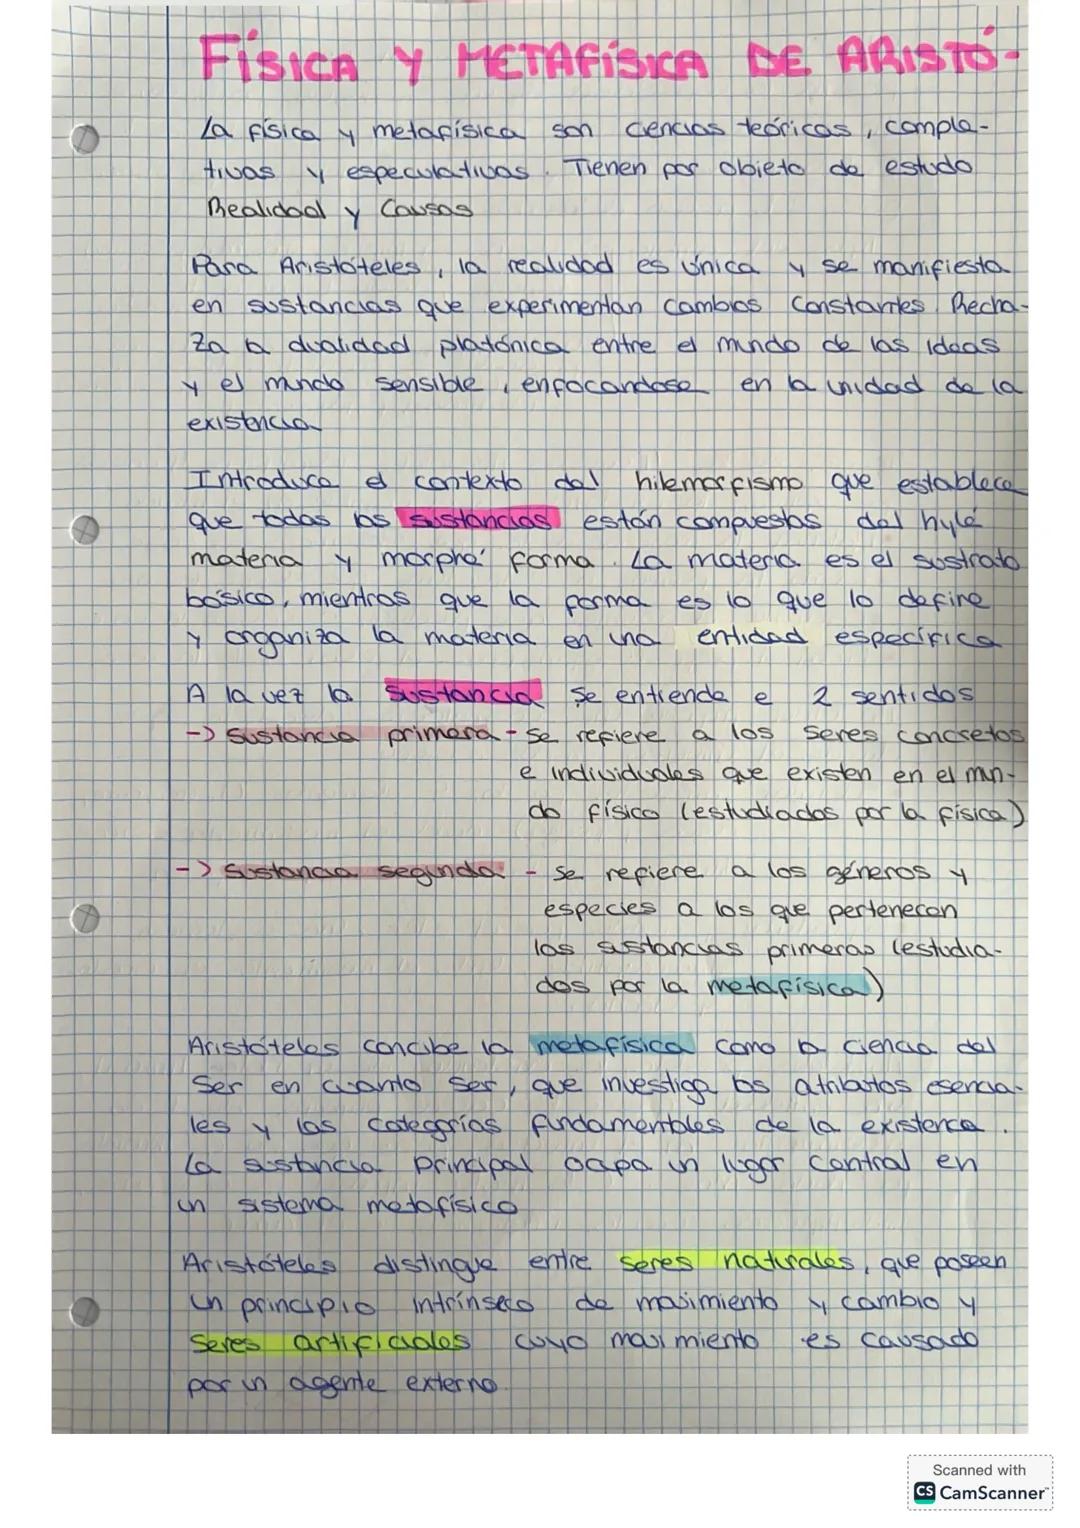 FÍSICA Y METAFÍSICA DE ARISTÓ-
La física y metafísica son ciencias teóricas, compla-
tivas y especulativas. Tienen por objeto de estudo
Realidad y Causas
Para Aristóteles, la realidad es única y se manifiesta
en sustancias que experimentan cambios constantes. Recha-
za la dualidad platónica entre el mundo de las ideas
y el mundo sensible, enfocandose en la unidad de la
existencia
Introduce el contexto del hilemorfismo que establece
que todas las sustancias están compuestas del hylé
materia y morphé forma. La materia es el sustrato
básico, mientras que la forma es lo que lo define
y organiza la materia en una entidad específica
A la vez la sustancia se entiende e 2 sentidos
-> Sustancia primera - se refiere a los seres concretos
e individuales que existen en el mun-
do físico (estudiados por la física)
-> Sustancia segunda - se refiere a los géneros y
especies a los que pertenecen
las sustancias primeras (estudia-
dos por la metafísica)
Aristóteles concibe la metafísica como la ciencia del
Ser en cuanto ser, que investiga los atributos esencia-
les y las categorías fundamentales de la existenca.
La sustancia principal ocupa un lugar central en
un sistema metafísico
Aristóteles distingue entre seres naturales, que poseen
un principio intrínseco de movimiento y cambio y
seres artificiales cuyo movimiento es causado
por un agente externo.
Scanned with
CS CamScanner